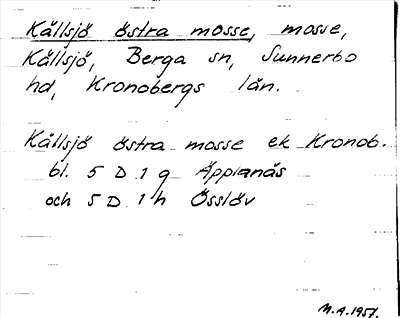 Källsjö östra mosse, mosse,
Källsjö, Berga sn, Sunnerbo
hd, Kronobergs län.
Källsjö östra mosse ek Kronob.
bl. 5 D 1 g Äpplanäs
och 5 D 1 h Össlöv
M.A. 1957.